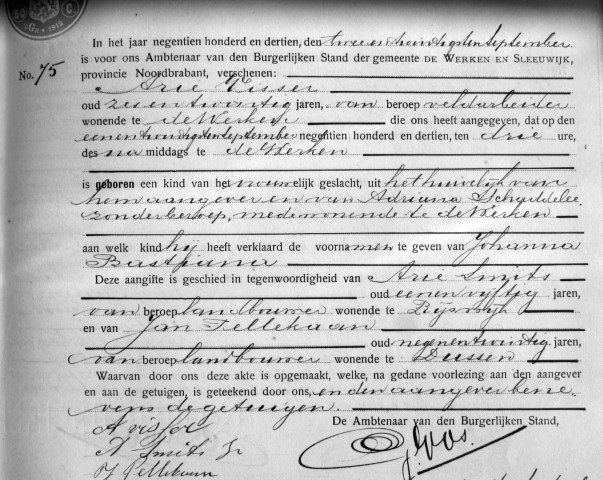 50 C
*Gs* 1912
In het jaar negentien honderd en dertien, den twee en twintigsten September
is voor ons Ambtenaar van den Burgerlijken Stand der gemeente DE WERKEN EN SLEEUWIJK,
No. 75 provincie Noordbrabant, verschenen:
Arie Visser
oud zes en twintig jaren, van beroep veldarbeider
wonende te de Werken die ons heeft aangegeven, dat op den
eenentwintigsten September negentien honderd en dertien, ten drie ure,
des na middags te de Werken
is geboren een kind van het vrouwelijk geslacht, uit het huwelijk van
hem aangever en van Adriana Schuddelee,
zonder beroep, mede wonende te de Werken
aan welk kind hij heeft verklaard de voornamen te geven van Johanna
Bastiana
Deze aangifte is geschied in tegenwoordigheid van Arie Smits
oud eenenvijftig jaren,
van beroep landbouwer wonende te Rijswijk
en van Jan Tellekaan
oud negenentwintig jaren,
van beroep landbouwer wonende te Dussen
Waarvan door ons deze akte is opgemaakt, welke, na gedane voorlezing aan den aangever
en aan de getuigen, is geteekend door ons, en den aangever bene
vens de getuigen.
De Ambtenaar van den Burgerlijken Stand,
A visser
A Smits Jz
J Tellekaan
J. Vos.